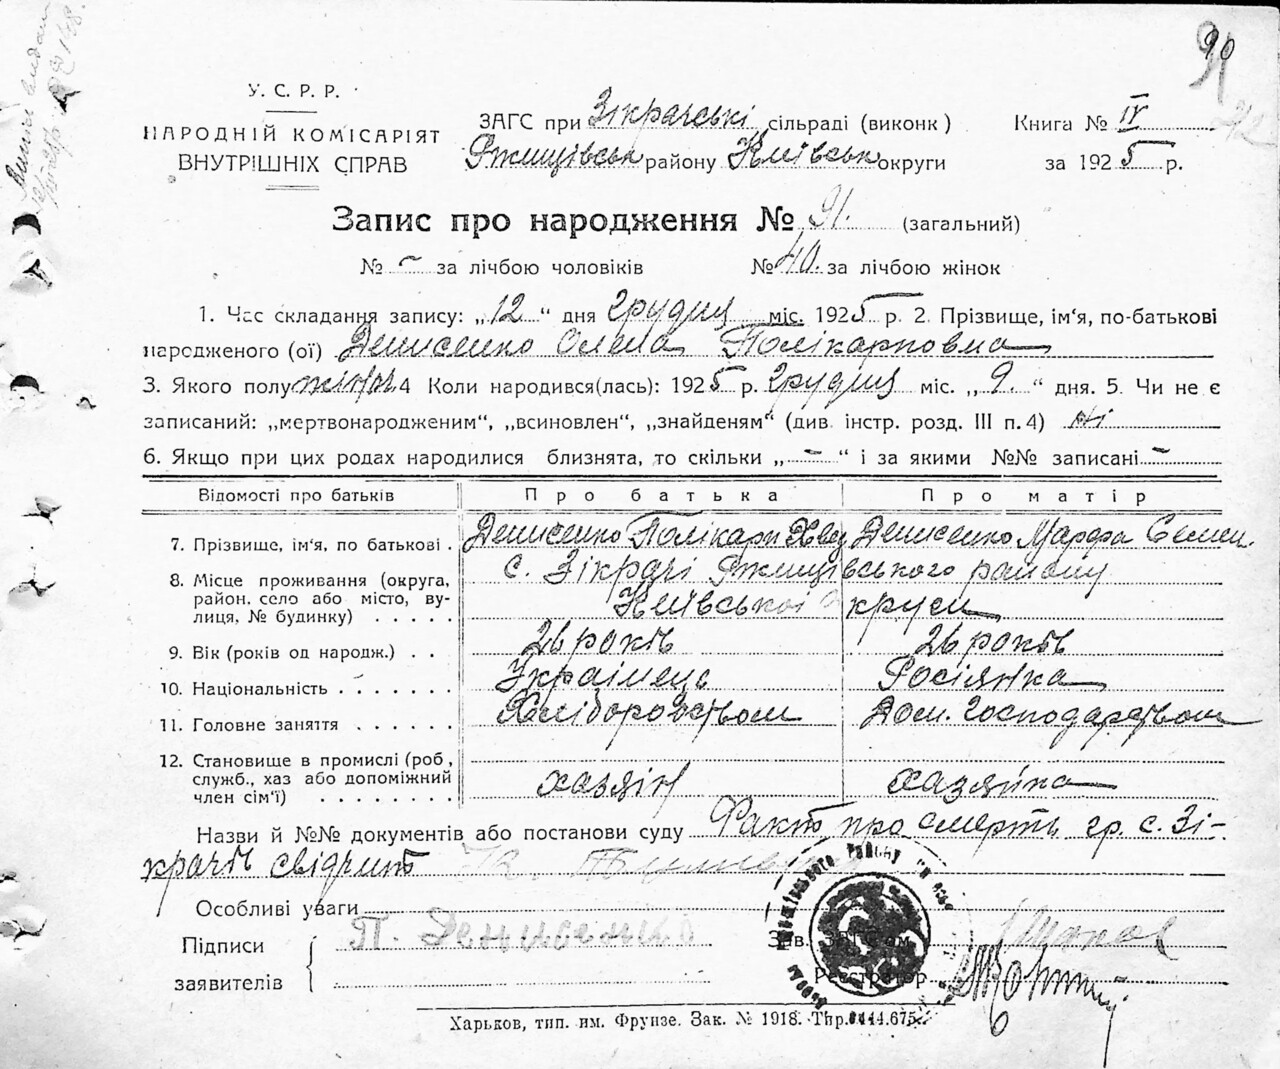 90
У. С. Р. Р.
НАРОДНІЙ КОМІСАРІЯТ
ВНУТРІШНІХ СПРАВ
ЗАГС при Зікрачські сільраді (виконк)
Ржищівськ району Київськ округи
Книга № IV
за 1925 р.
Запис про народження № 91. (загальний)
№ – за лічбою чоловіків № 40. за лічбою жінок
1. Час складання запису: „12“ дня грудня міс. 1925 р. 2. Прізвище, ім'я, по-батькові
народженого (ої) Денисенко Олена Полікарповна
3. Якого полу жіноч 4 Коли народився(лась): 1925 р. грудня міс. „9.“ дня. 5. Чи не є
записаний: „мертвонародженим“, „всиновлен“, „знайденям“ (див. інстр. розд. III п. 4) ні
6. Якщо при цих родах народилися близнята, то скільки „–“ і за якими №№ записані –
Відомості про батьків Про батька Про матір
7. Прізвище, ім'я, по батькові . Денисенко Полікарп Хвед Денисенко Марфа Семен.
8. Місце проживання (округа, район, село або місто, вулиця, № будинку) . . . . . с. Зікрачі Ржищівського району
Київської округи
9. Вік (років од народж.) . . 26 років 26 років
10. Національність . . . . . . . Українець Росіянка
11. Головне заняття . . . . . . Хліборобством Дом. господарством
12. Становище в промислі (роб., служб., хаз або допоміжний член сім'ї) . . . . . . . . хазяїн хазяйка
Назви й №№ документів або постанови суду Факт про смерть гр. с. Зі-
крачів свідчить
Особливі уваги
Підписи П. Денисенко Зав. ЗАГСом
заявителів Реєстратор
Харьков, тип. им. Фрунзе. Зак. № 1918. Тир. 444.675.